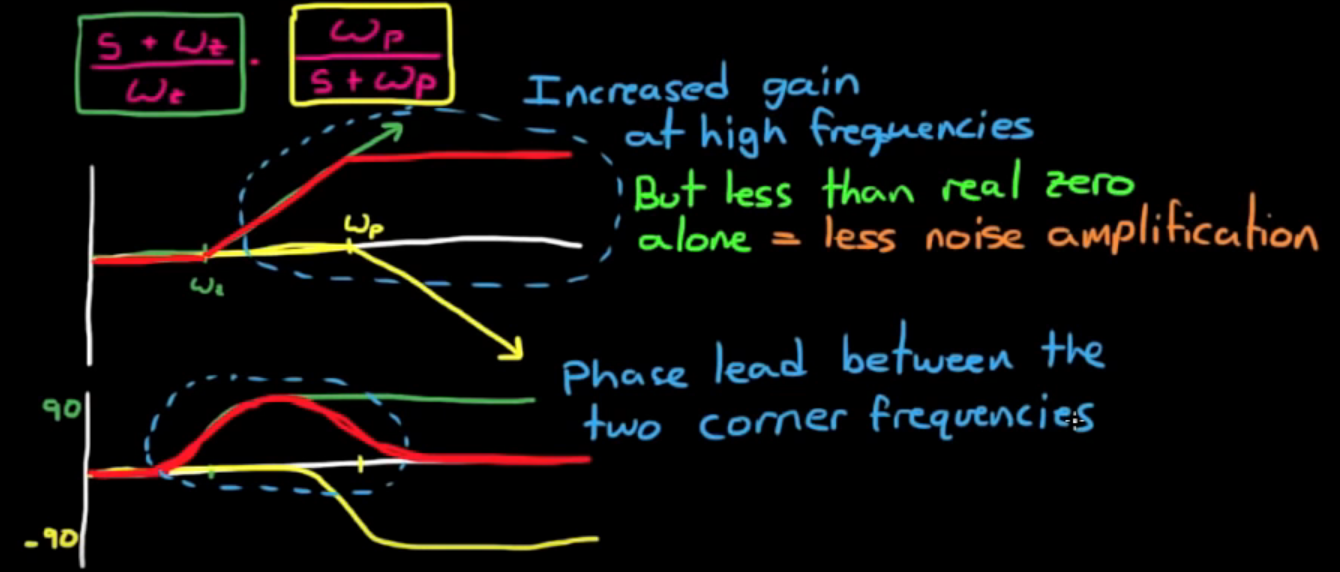 s + ωz / ωz · ωp / s + ωp
Increased gain
at high frequencies
But less than real zero
alone = less noise amplification
ωp
ωz
Phase lead between the
two corner frequencies
90
-90